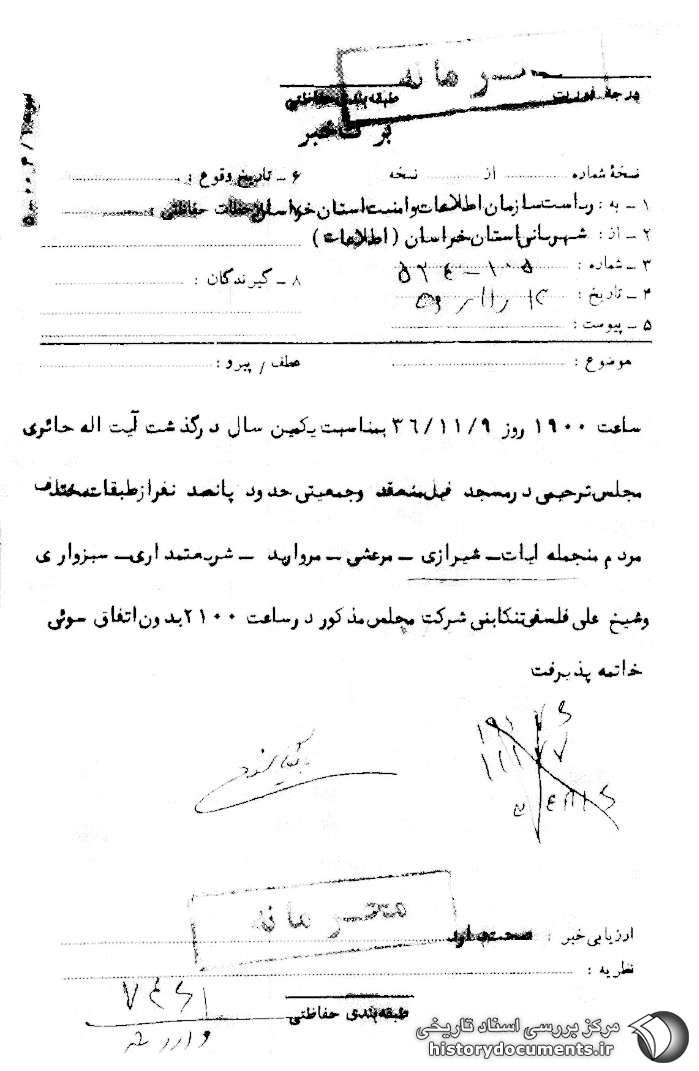 محرمانه
درجه فوریت طبقه‌بندی حفاظتی
برگ خبر
نسخهٔ شماره ........ از ........ نسخه
۶ – تاریخ وقوع :
۱ – به : ریاست سازمان اطلاعات و امنیت استان خراسان ملاحظات حفاظتی :
۲ – از : شهربانی استان خراسان (اطلاعات)
۳ – شماره : ۱۰۵ – ۵۲۴
۸ – گیرندگان :
۴ – تاریخ :
۵ – پیوست :
موضوع : عطف / پیرو :
ساعت ۱۹۰۰ روز ۳۶/۱۱/۹ بمناسبت یکمین سال درگذشت آیت اله حائری
مجلس ترحیمی درمسجد فیل منعقد وجمعیتی حدود پانصد نفرازطبقات مختلف
مردم منجمله ایات – شیرازی – مرعشی – مروارید – شریعتمداری – سبزواری
وشیخ علی فلسفی تنکابنی شرکت مجلس مذکور درساعت ۲۱۰۰ بدون اتفاق سوئی
خاتمه پذیرفت
محرمانه
ارزیابی خبر : صحت دارد
نظریه :
طبقه‌بندی حفاظتی
مرکز بررسی اسناد تاریخی
historydocuments.ir